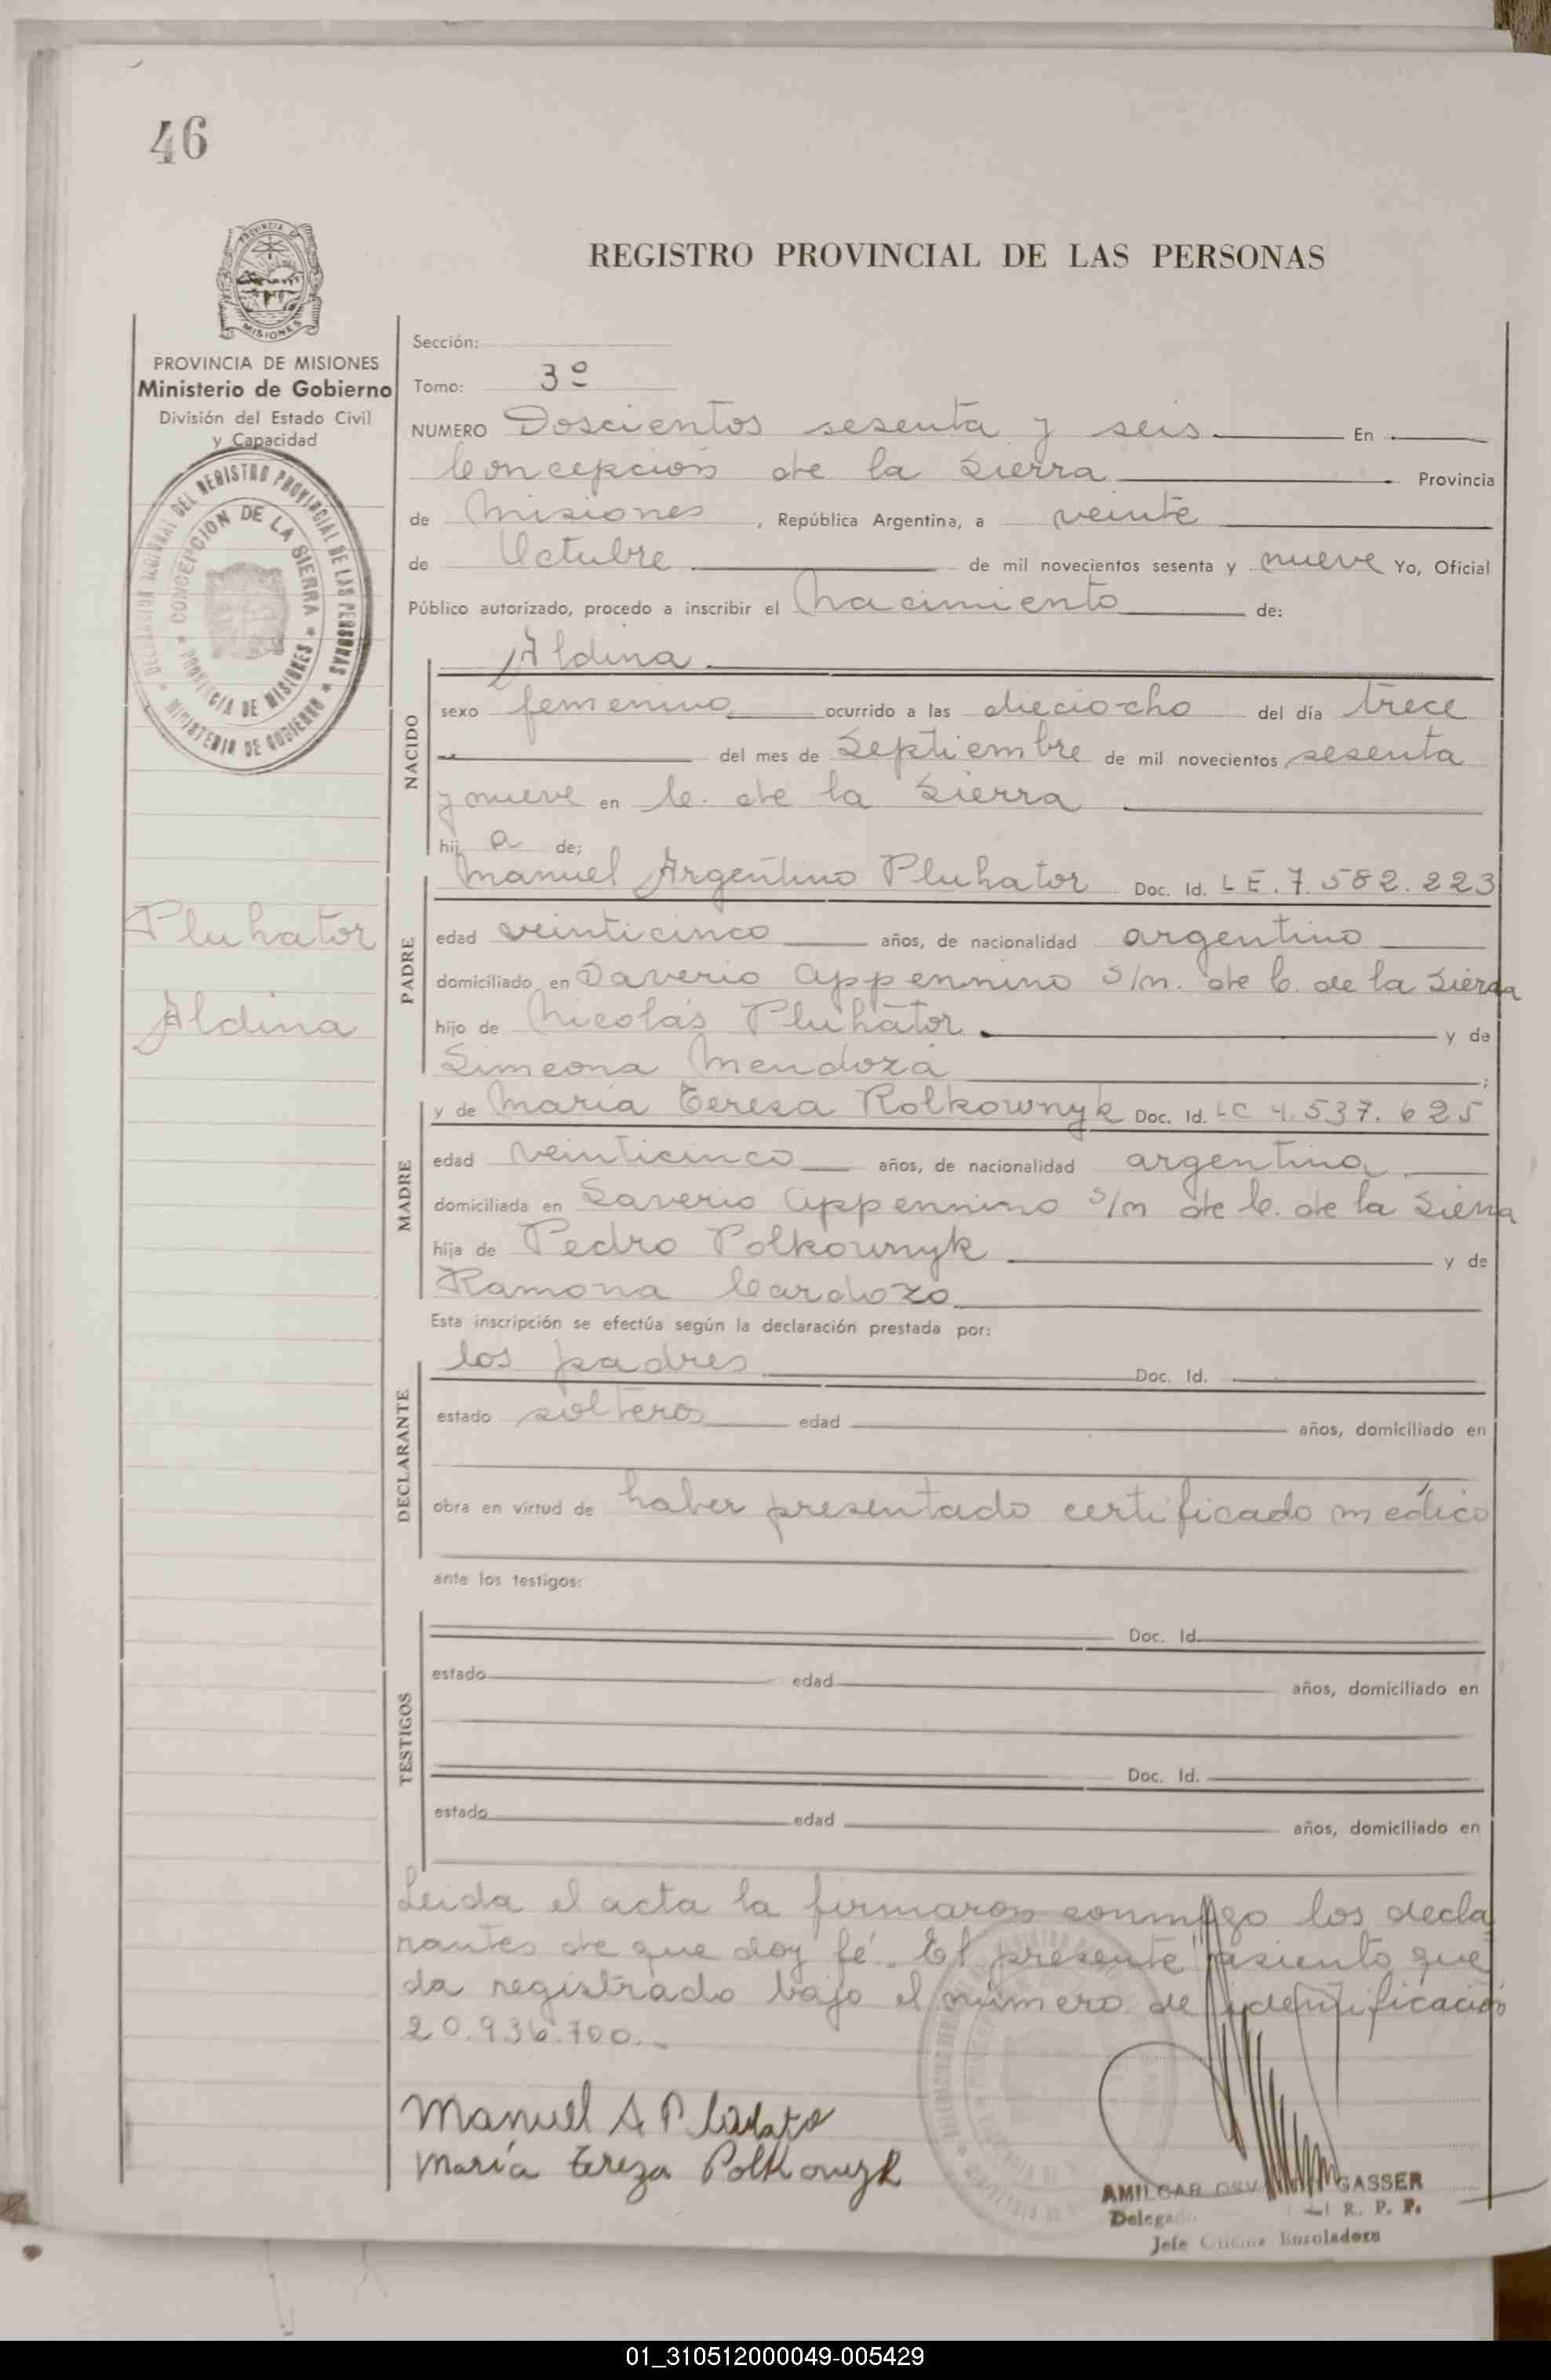 46
REGISTRO PROVINCIAL DE LAS PERSONAS
MISIONES
PROVINCIA DE MISIONES
Ministerio de Gobierno
División del Estado Civil
y Capacidad
REGIONAL DEL REGISTRO PROVINCIAL DE LAS PERSONAS
MINISTERIO DE GOBIERNO
CONCEPCION DE LA SIERRA
PROVINCIA DE MISIONES
Sección:
Tomo: 3º
NUMERO Doscientos sesenta y seis En
Concepción de la Sierra Provincia
de Misiones, República Argentina, a veinte
de Octubre de mil novecientos sesenta y nueve Yo, Oficial
Público autorizado, procedo a inscribir el Nacimiento de:
NACIDO
Aldina
sexo femenino ocurrido a las dieciocho del día trece
del mes de Septiembre de mil novecientos sesenta
y nueve en C. de la Sierra
hij a de;
Pluhator
Aldina
PADRE
Manuel Argentino Pluhator Doc. Id. LE. 7.582.223
edad veinticinco años, de nacionalidad argentino
domiciliado en Saverio Appennino s/n. de C. de la Sierra
hijo de Nicolás Pluhator y de
Simeona Mendoza ;
MADRE
y de María Teresa Polkownyk Doc. Id. LC 4.537.625
edad veinticinco años, de nacionalidad argentina
domiciliada en Saverio Appennino s/n de C. de la Sierra
hija de Pedro Polkownyk y de
Ramona Cardozo
Esta inscripción se efectúa según la declaración prestada por:
DECLARANTE
los padres Doc. Id.
estado solteros edad años, domiciliado en
obra en virtud de haber presentado certificado médico
ante los testigos:
TESTIGOS
Doc. Id.
estado edad años, domiciliado en
Doc. Id.
estado edad años, domiciliado en
Leida el acta la firmaron conmigo los decla
rantes de que doy fé. El presente asiento que
da registrado bajo el número de identificación
20.936.700.-
Manuel A P
María Tereza Polkownyk
AMILCAR OSV GASSER
Delegado R. P. P.
Jefe Oficina Enroladora
01_310512000049-005429